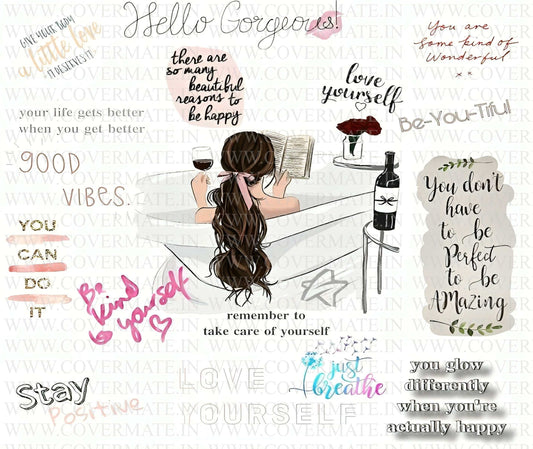 Hello Gorgeous!
GIVE YOUR BODY
a little love
IT DESERVES IT
there are
so many
beautiful
reasons to
be happy
love
yourself
You are
some kind of
Wonderful
Be-You-Tiful
your life gets better
when you get better
GOOD
VIBES..
YOU
CAN
DO
IT
Be
kind
yourself
You don't
have
to be
Perfect
to be
AMazing
remember to
take care of yourself
just
breathe
Stay
Positive
LOVE
YOURSELF
you glow
differently
when you're
actually happy
WWW.COVERMATE.IN